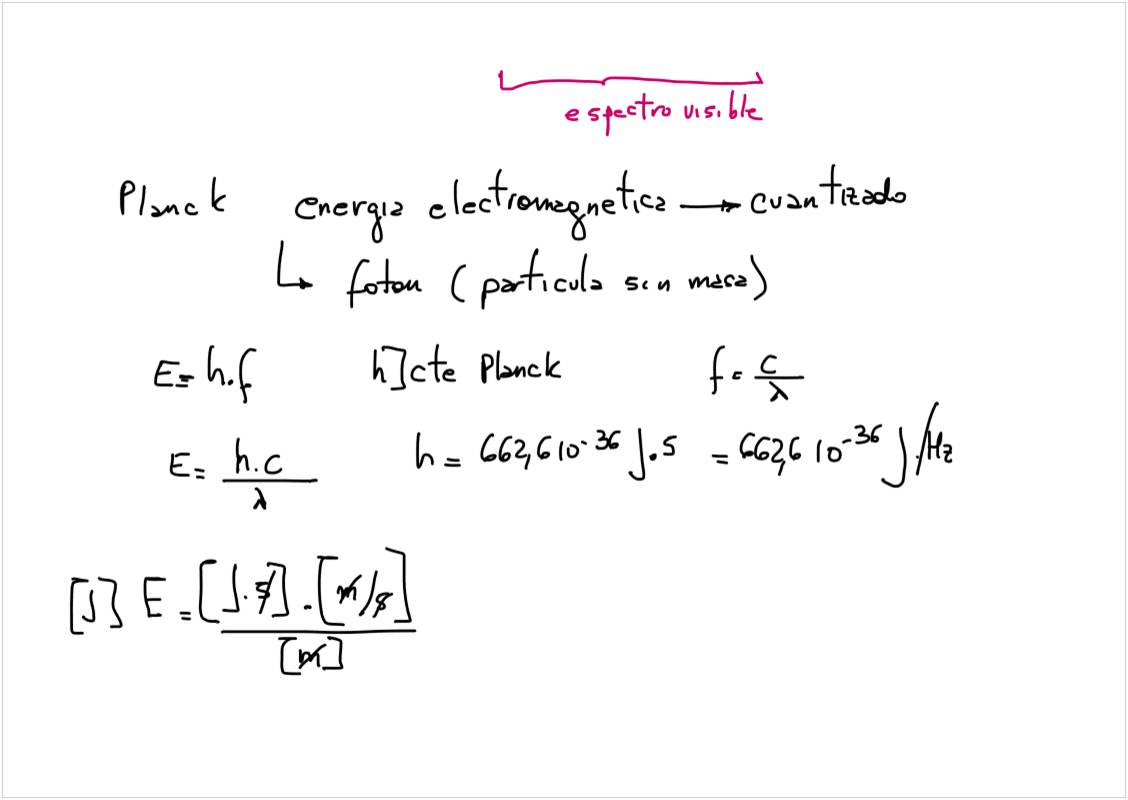 espectro visible
Planck energia electromagnetica → cuantizado
↳ foton (particula sin masa)
E = h.f h]cte Planck f = c/λ
E = h.c/λ h = 662,6 10^-36 J.s = 662,6 10^-36 J/Hz
[J] E = [J.s].[m/s]/[m]